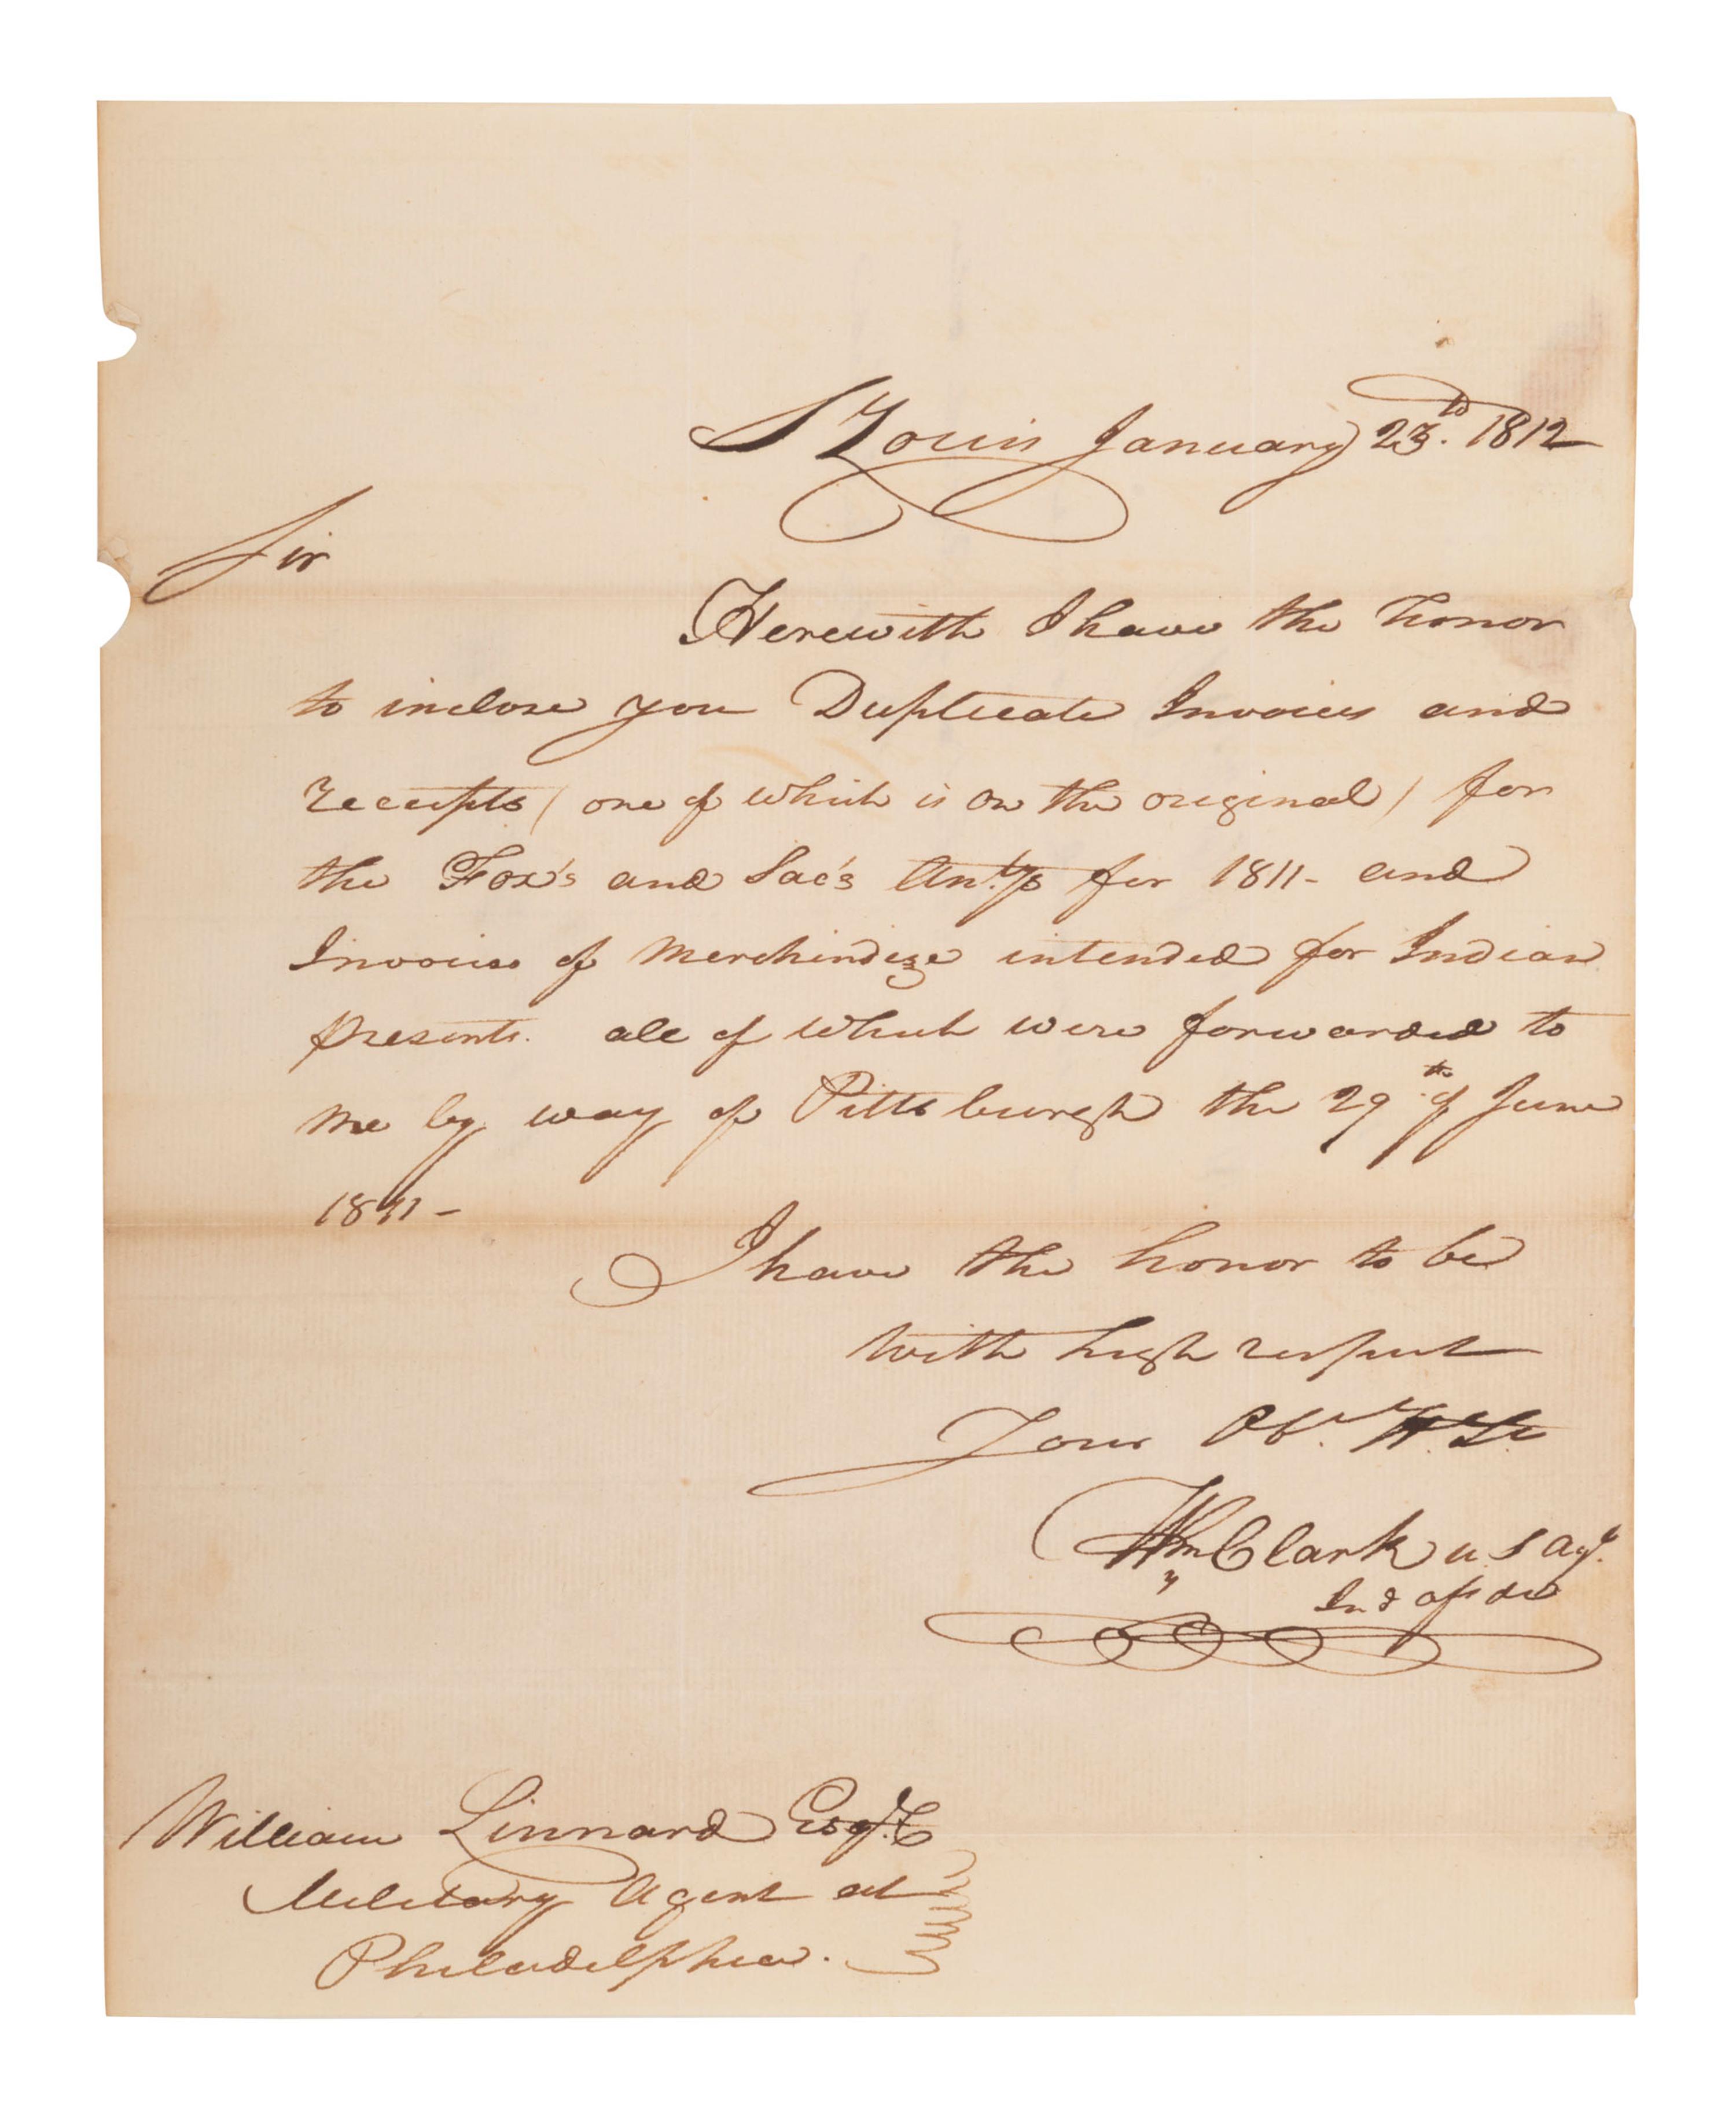 St Louis January 23rd. 1812
Sir
Herewith I have the honor
to inclose you Duplicate Invoices and
receipts (one of which is on the original) for
the Fox's and Sac's An.ty's for 1811 - and
Invoices of Merchindize intended for Indian
presents. all of which were forwarded to
me by way of Pittsburgh the 29th of June
1811 -
I have the honor to be
With high respect
Your Ob.t H. St
Wm Clark U. S agt.
Ind afs de
William Linnard Esqr.
Military Agent at
Philadelphia.